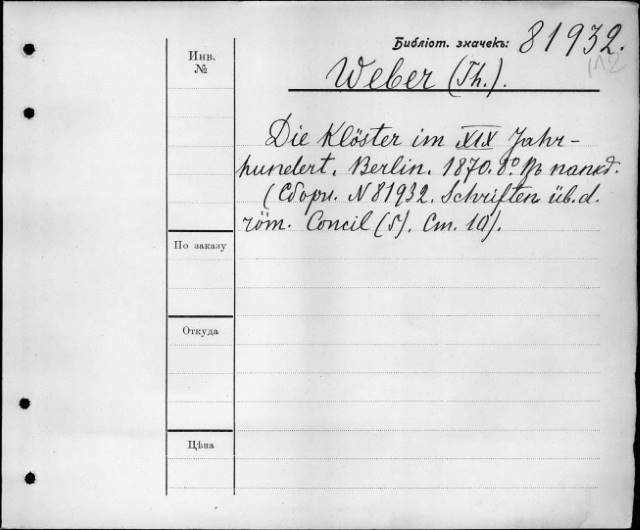 Библіот. значекъ: 81932.
Инв.
№
Weber (Th.).
Die Klöster im XIX Jahr-
hundert. Berlin. 1870. 8° Въ папкѣ.
(Сборн. N 81932. Schriften üb. d.
röm. Concil (5). Ст. 10).
По заказу
Откуда
Цѣна